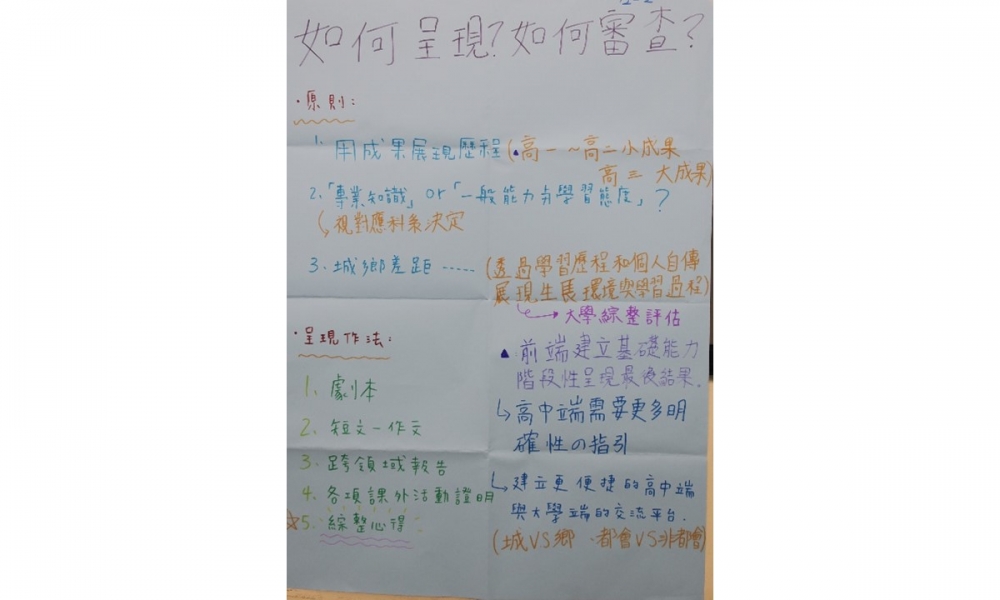 如何呈現?如何審查?
・原則:
1. 用成果展現歷程(▲高一~高二小成果
高三 大成果)
2.「專業知識」or「一般能力与學習態度」?
↳視對應科系決定
3. 城鄉差距 ----- (透過學習歷程和個人自傳
展現生長環境與學習過程)
→大學綜整評估
・呈現作法:
1. 劇本
2. 短文-作文
3. 跨領域報告
4. 各項課外活動證明
☆5. 綜整心得
▲前端建立基礎能力
階段性呈現最後結果.
↳高中端需要更多明
確性の指引
↳建立更便捷的高中端
與大學端的交流平台.
(城VS鄉、都會VS非都會)